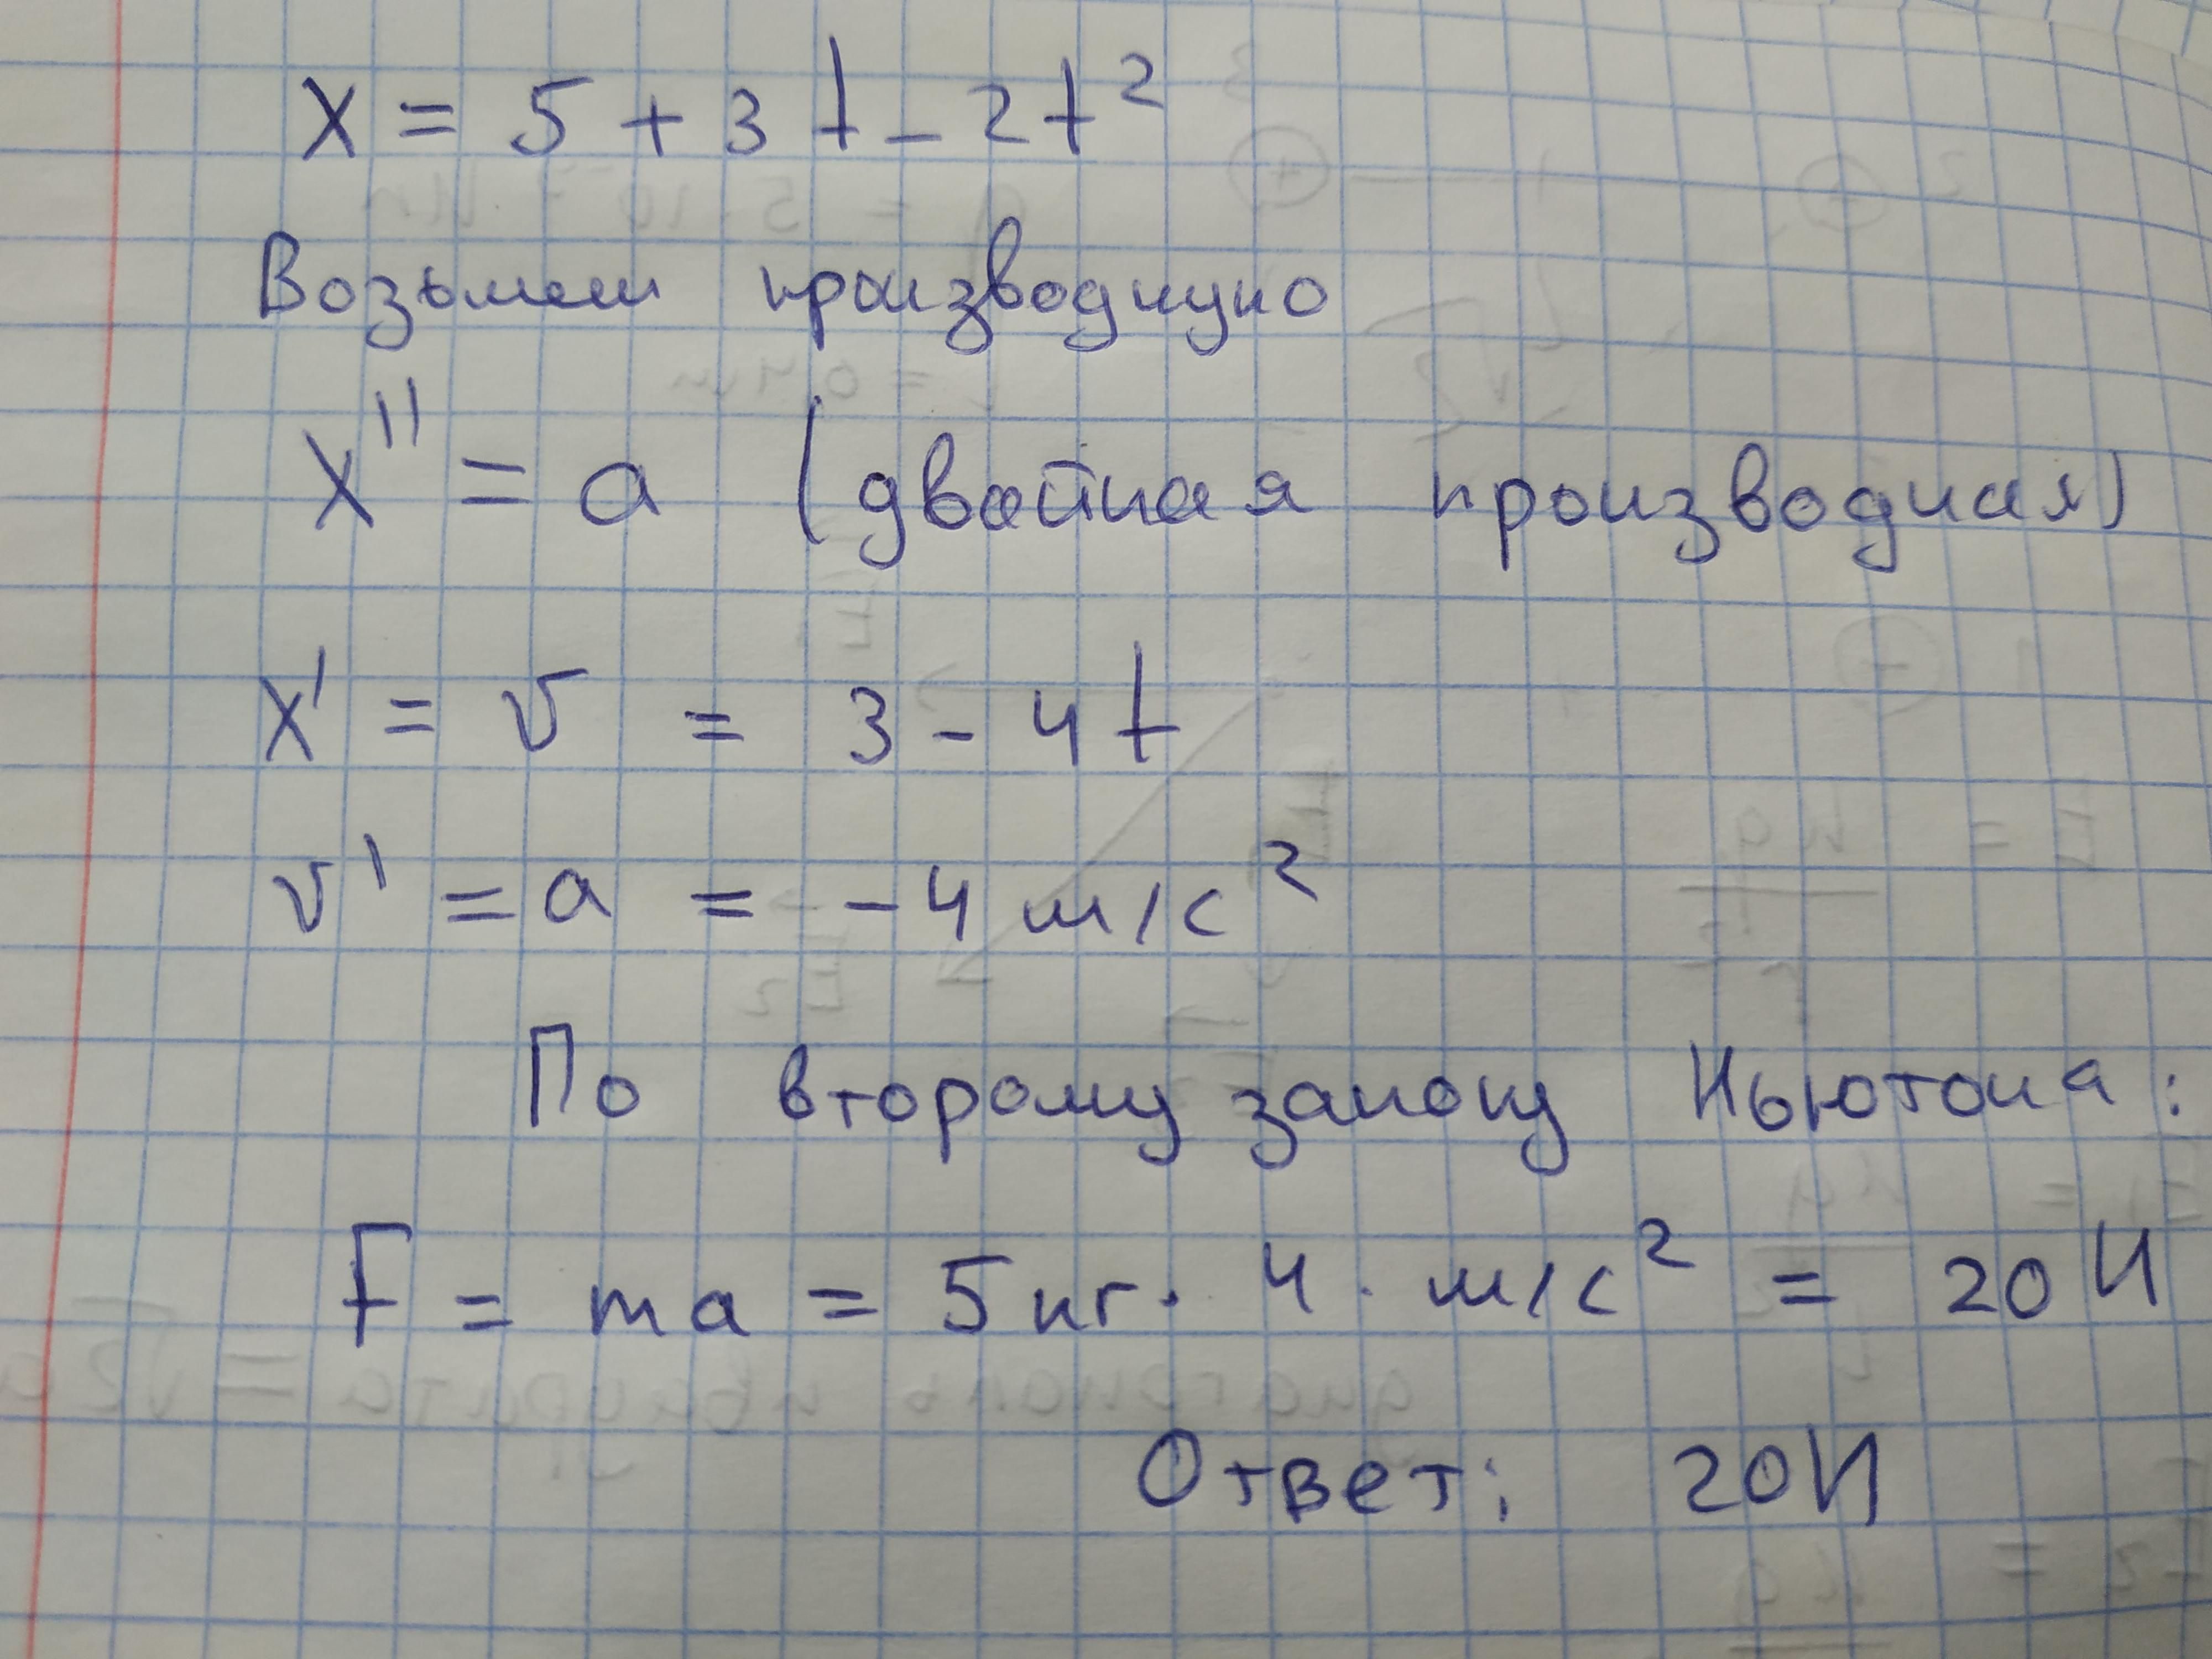 x = 5 + 3t - 2t²
Возьмем производную
x'' = a (двойная производная)
x' = v = 3 - 4t
v' = a = -4 м/с²
По второму закону Ньютона:
F = ma = 5кг · 4 · м/с² = 20 Н
Ответ: 20Н